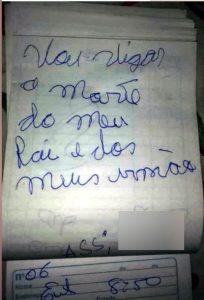 Vou vigar
a morte
do meu
Pai e dos
meus irmão
ASS;
nº 06
Nome
8250